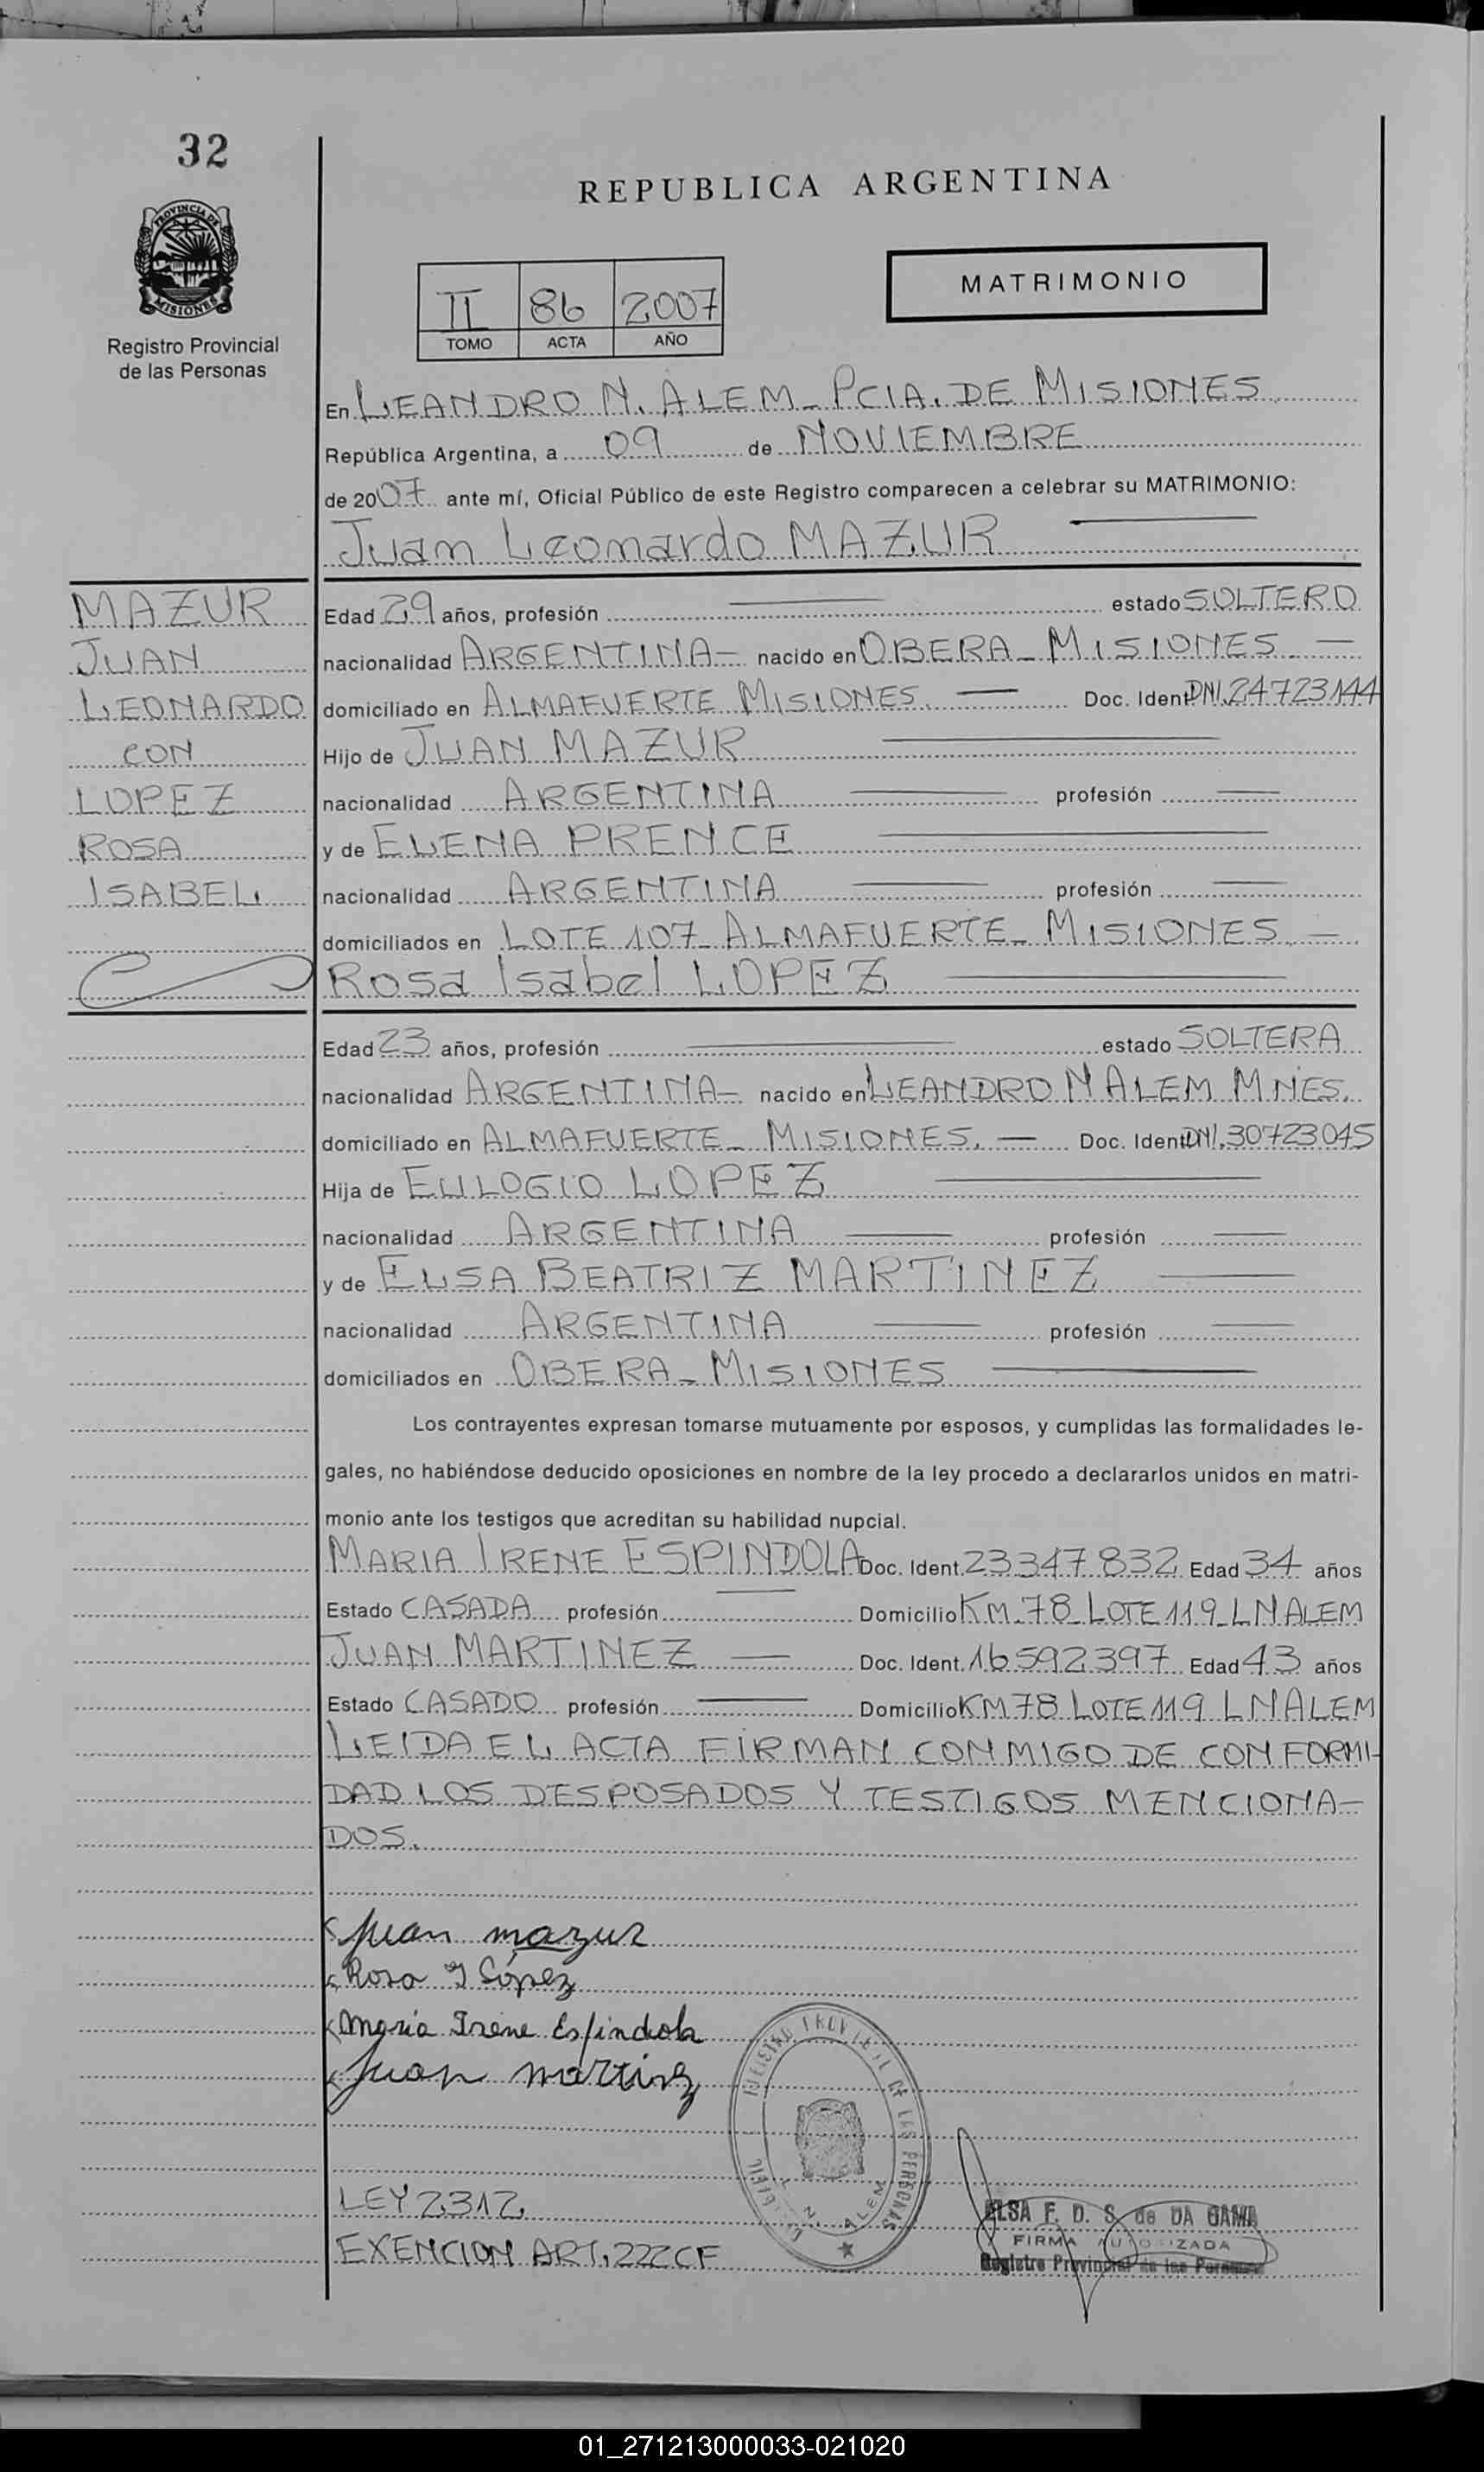 32
PROVINCIA DE
MISIONES
Registro Provincial
de las Personas
REPUBLICA ARGENTINA
MATRIMONIO
II 86 2007
TOMO ACTA AÑO
En LEANDRO N. ALEM_ PCIA. DE MISIONES
República Argentina, a 09 de NOVIEMBRE
de 2007 ante mí, Oficial Público de este Registro comparecen a celebrar su MATRIMONIO:
Juan Leonardo MAZUR
MAZUR
JUAN
LEONARDO
CON
LOPEZ
ROSA
ISABEL
Edad 29 años, profesión estado SOLTERO
nacionalidad ARGENTINA- nacido en OBERA_ MISIONES. -
domiciliado en ALMAFUERTE MISIONES. Doc. Ident. DNI. 24723144
Hijo de JUAN MAZUR
nacionalidad ARGENTINA profesión
y de ELENA PRENCE
nacionalidad ARGENTINA profesión
domiciliados en LOTE 107_ ALMAFUERTE_ MISIONES. -
Rosa Isabel LOPEZ
Edad 23 años, profesión estado SOLTERA
nacionalidad ARGENTINA- nacido en LEANDRO N ALEM MNES.
domiciliado en ALMAFUERTE_ MISIONES. Doc. Ident. DNI. 30723045
Hija de EULOGIO LOPEZ
nacionalidad ARGENTINA profesión
y de ELSA BEATRIZ MARTINEZ
nacionalidad ARGENTINA profesión
domiciliados en OBERA_ MISIONES
Los contrayentes expresan tomarse mutuamente por esposos, y cumplidas las formalidades le-
gales, no habiéndose deducido oposiciones en nombre de la ley procedo a declararlos unidos en matri-
monio ante los testigos que acreditan su habilidad nupcial.
MARIA IRENE ESPINDOLA Doc. Ident. 23347832 Edad 34 años
Estado CASADA profesión Domicilio KM_78_LOTE 119_LNALEM
JUAN MARTINEZ Doc. Ident. 16592397 Edad 43 años
Estado CASADO profesión Domicilio KM78 LOTE 119 LNALEM
LEIDA EL ACTA FIRMAN CONMIGO DE CONFORMI-
DAD LOS DESPOSADOS Y TESTIGOS MENCIONA-
DOS.
Juan mazur
Rosa I López
Maria Irene Espindola
Juan Martinz
REGISTRO PROVINCIAL DE LAS PERSONAS
N. ALEM
LEY 2312.
EXENCION ART. 222CF
ELSA F. D. S. de DA GAMA
FIRMA AUTORIZADA
Registro Provincial de las Personas
01_271213000033-021020